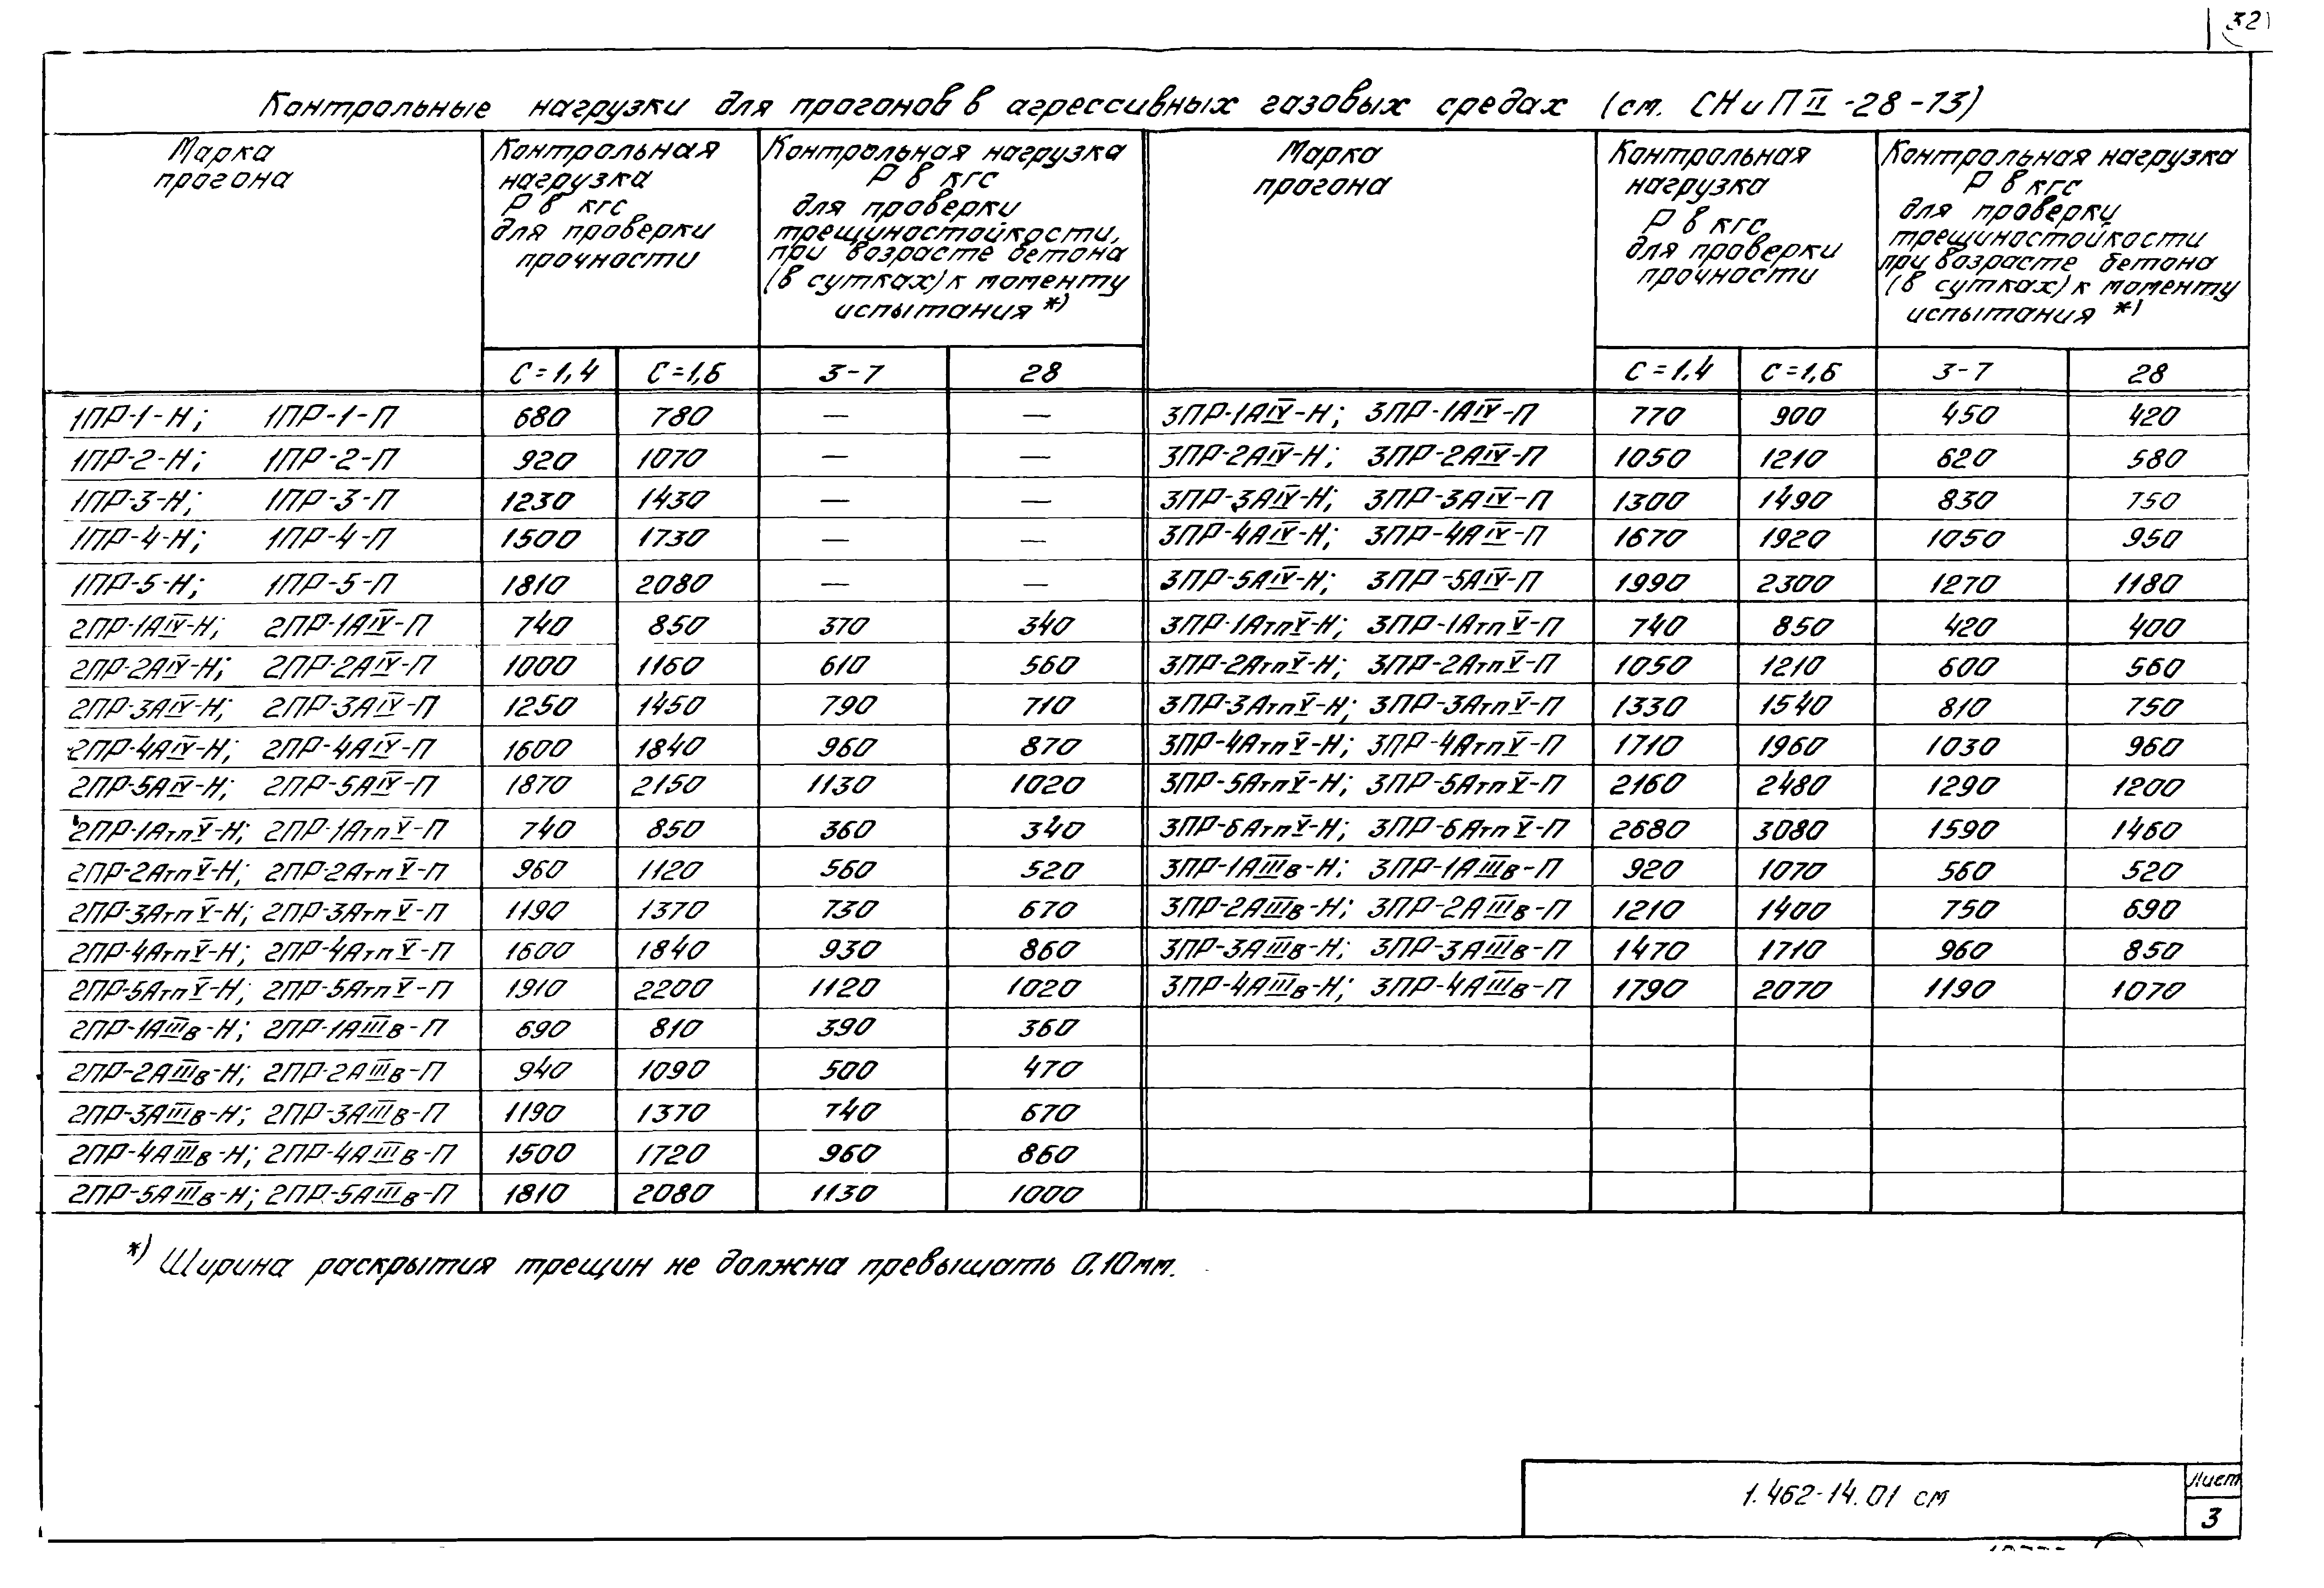 32
Контрольные нагрузки для прогонов в агрессивных газовых средах (см. СНиП II-28-73)
Марка прогона | Контрольная нагрузка Р в кгс для проверки прочности | Контрольная нагрузка Р в кгс для проверки трещиностойкости, при возрасте бетона (в сутках) к моменту испытания *) | Марка прогона | Контрольная нагрузка Р в кгс для проверки прочности | Контрольная нагрузка Р в кгс для проверки трещиностойкости при возрасте бетона (в сутках) к моменту испытания *)
С=1,4 | С=1,6 | 3-7 | 28 | С=1,4 | С=1,6 | 3-7 | 28
1ПР-1-Н; 1ПР-1-П | 680 | 780 | — | — | 3ПР-1АIV-Н; 3ПР-1АIV-П | 770 | 900 | 450 | 420
1ПР-2-Н; 1ПР-2-П | 920 | 1070 | — | — | 3ПР-2АIV-Н; 3ПР-2АIV-П | 1050 | 1210 | 620 | 580
1ПР-3-Н; 1ПР-3-П | 1230 | 1430 | — | — | 3ПР-3АIV-Н; 3ПР-3АIV-П | 1300 | 1490 | 830 | 750
1ПР-4-Н; 1ПР-4-П | 1500 | 1730 | — | — | 3ПР-4АIV-Н; 3ПР-4АIV-П | 1670 | 1920 | 1050 | 950
1ПР-5-Н; 1ПР-5-П | 1810 | 2080 | — | — | 3ПР-5АIV-Н; 3ПР-5АIV-П | 1990 | 2300 | 1270 | 1180
2ПР-1АIV-Н; 2ПР-1АIV-П | 740 | 850 | 370 | 340 | 3ПР-1АтпV-Н; 3ПР-1АтпV-П | 740 | 850 | 420 | 400
2ПР-2АIV-Н; 2ПР-2АIV-П | 1000 | 1160 | 610 | 560 | 3ПР-2АтпV-Н; 3ПР-2АтпV-П | 1050 | 1210 | 600 | 560
2ПР-3АIV-Н; 2ПР-3АIV-П | 1250 | 1450 | 790 | 710 | 3ПР-3АтпV-Н; 3ПР-3АтпV-П | 1330 | 1540 | 810 | 750
2ПР-4АIV-Н; 2ПР-4АIV-П | 1600 | 1840 | 960 | 870 | 3ПР-4АтпV-Н; 3ПР-4АтпV-П | 1710 | 1960 | 1030 | 960
2ПР-5АIV-Н; 2ПР-5АIV-П | 1870 | 2150 | 1130 | 1020 | 3ПР-5АтпV-Н; 3ПР-5АтпV-П | 2160 | 2480 | 1290 | 1200
2ПР-1АтпV-Н; 2ПР-1АтпV-П | 740 | 850 | 360 | 340 | 3ПР-6АтпV-Н; 3ПР-6АтпV-П | 2680 | 3080 | 1590 | 1460
2ПР-2АтпV-Н; 2ПР-2АтпV-П | 960 | 1120 | 560 | 520 | 3ПР-1АIIIв-Н; 3ПР-1АIIIв-П | 920 | 1070 | 560 | 520
2ПР-3АтпV-Н; 2ПР-3АтпV-П | 1190 | 1370 | 730 | 670 | 3ПР-2АIIIв-Н; 3ПР-2АIIIв-П | 1210 | 1400 | 750 | 690
2ПР-4АтпV-Н; 2ПР-4АтпV-П | 1600 | 1840 | 930 | 860 | 3ПР-3АIIIв-Н; 3ПР-3АIIIв-П | 1470 | 1710 | 960 | 850
2ПР-5АтпV-Н; 2ПР-5АтпV-П | 1910 | 2200 | 1120 | 1020 | 3ПР-4АIIIв-Н; 3ПР-4АIIIв-П | 1790 | 2070 | 1190 | 1070
2ПР-1АIIIв-Н; 2ПР-1АIIIв-П | 690 | 810 | 390 | 360
2ПР-2АIIIв-Н; 2ПР-2АIIIв-П | 940 | 1090 | 500 | 470
2ПР-3АIIIв-Н; 2ПР-3АIIIв-П | 1190 | 1370 | 740 | 670
2ПР-4АIIIв-Н; 2ПР-4АIIIв-П | 1500 | 1720 | 960 | 860
2ПР-5АIIIв-Н; 2ПР-5АIIIв-П | 1810 | 2080 | 1130 | 1000
*) Ширина раскрытия трещин не должна превышать 0,10мм.
1.462-14.01 см
Лист
3